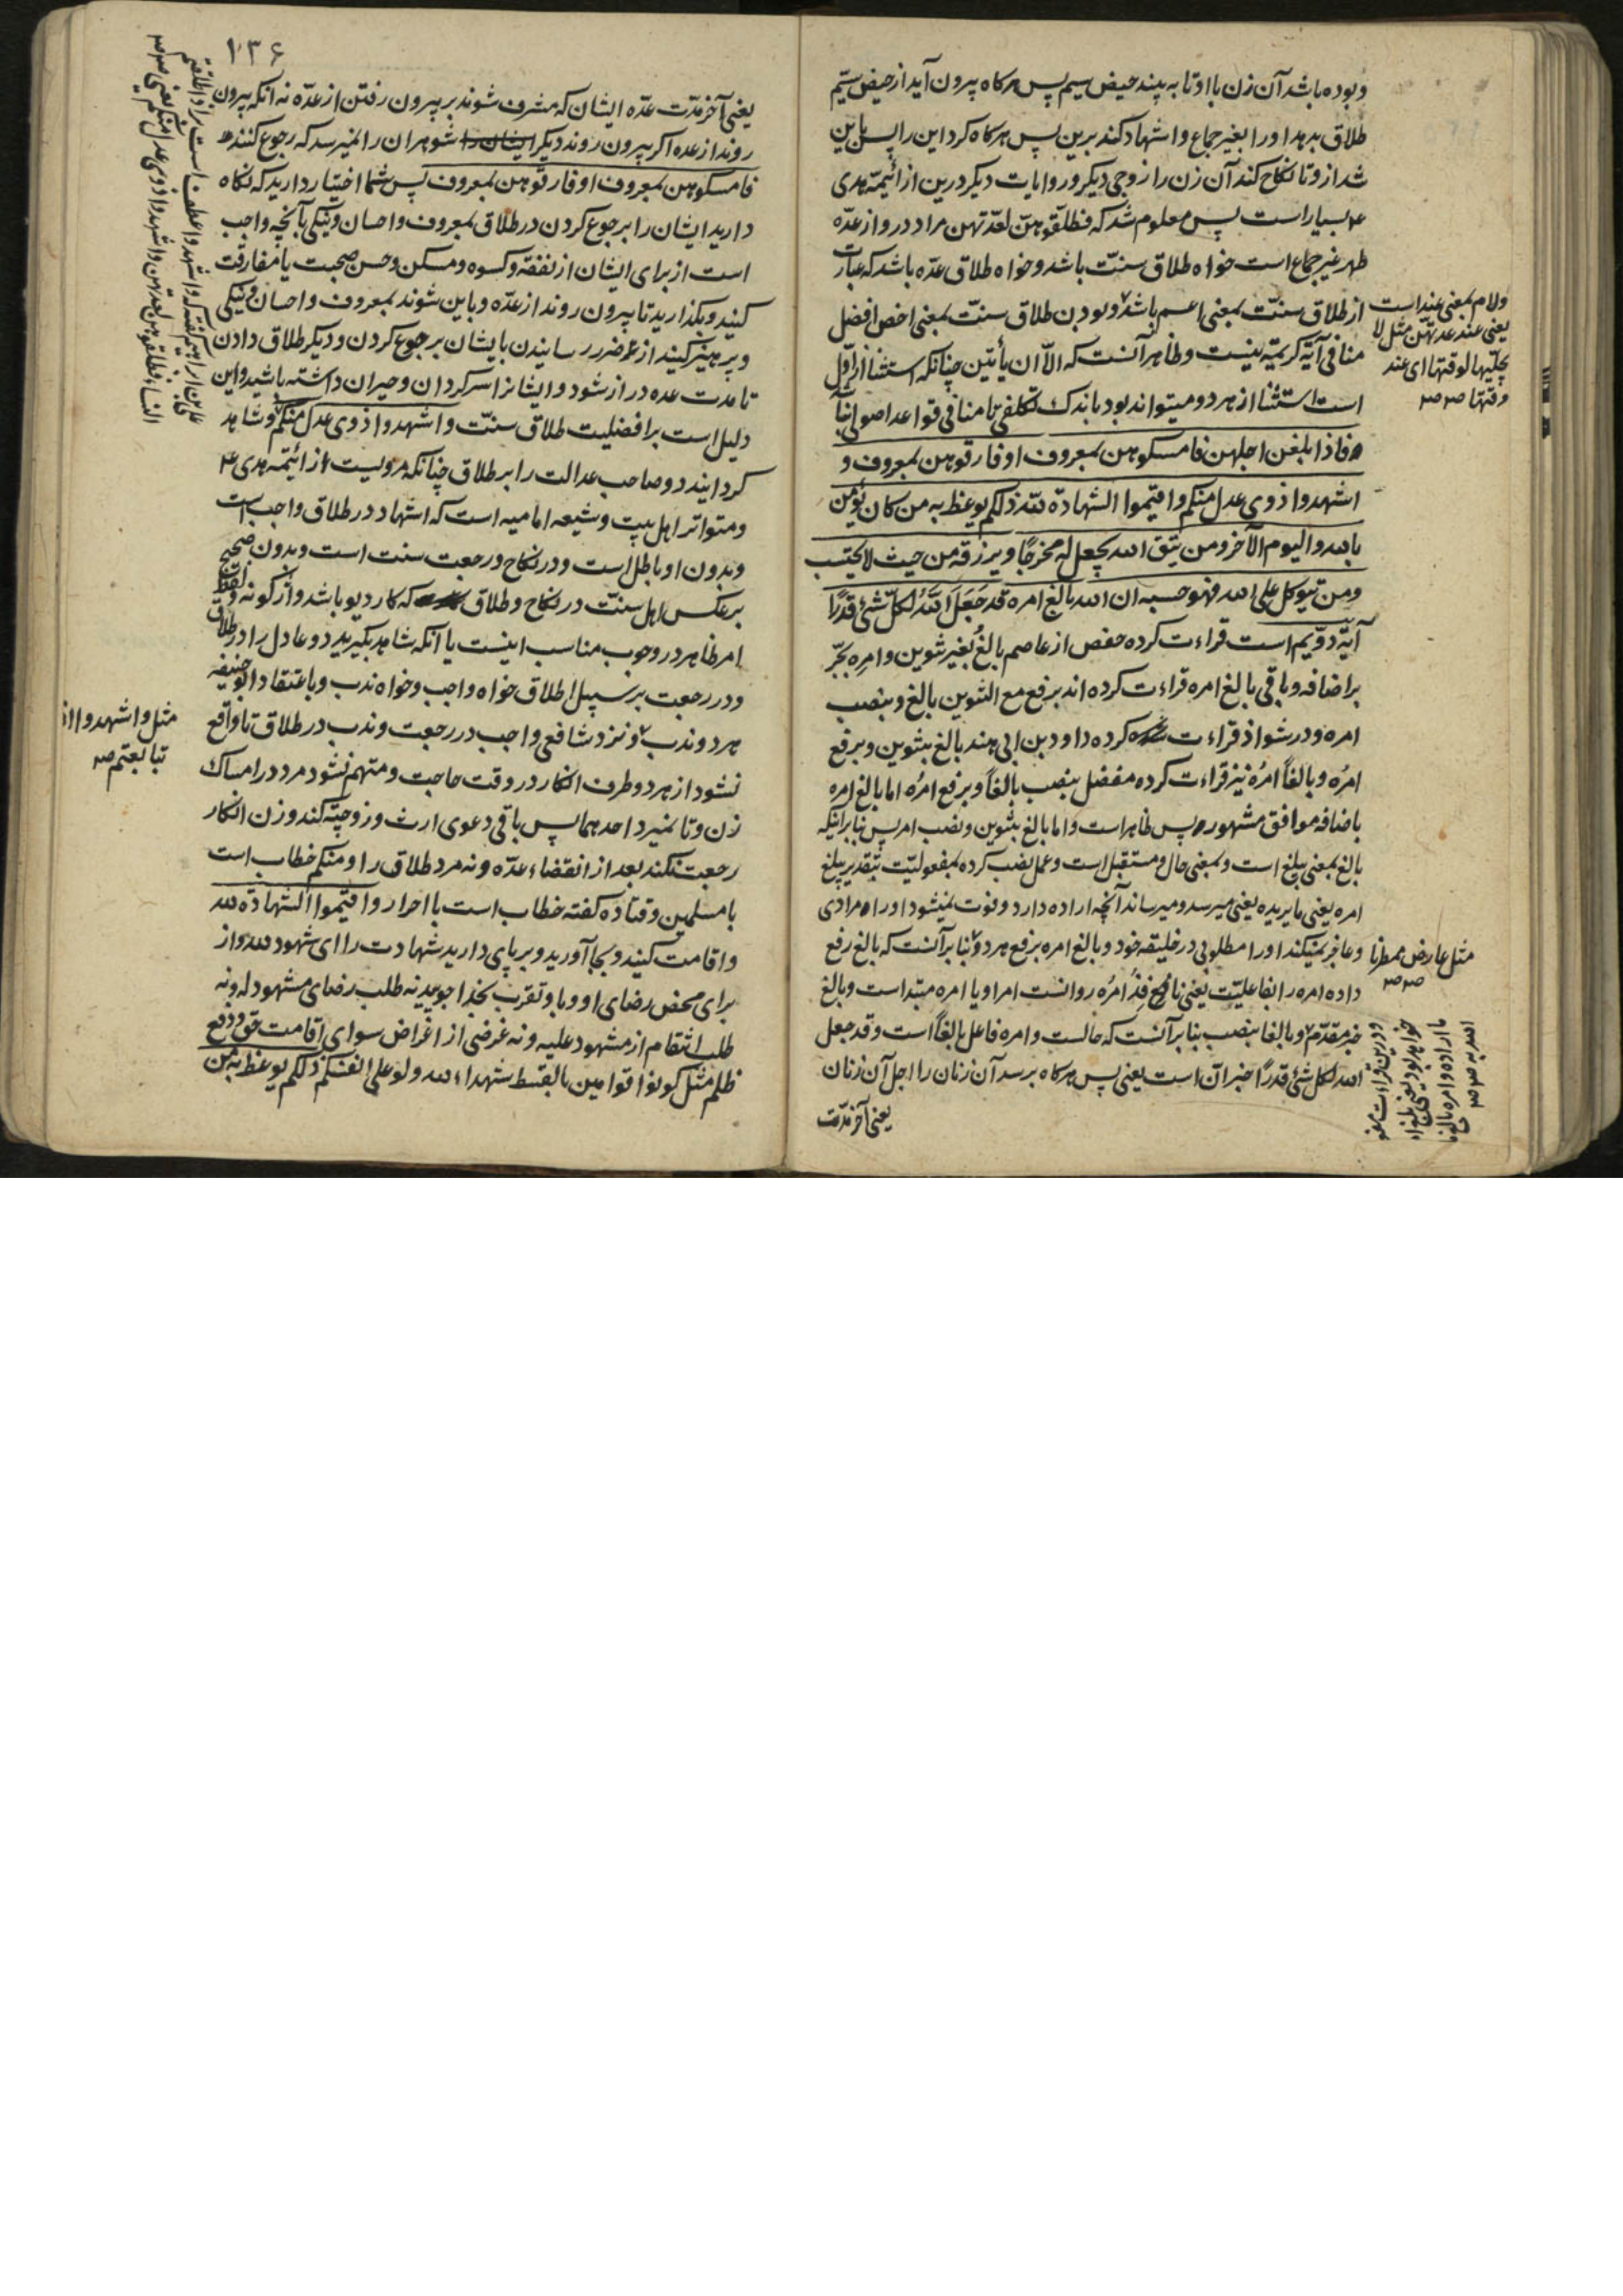 وبوده باشد آن زن با او تا به بیند حیض سیم پس هرکاه بیرون آید از حیض سیّم
طلاق بدهد او را بغیر جماع واشهاد کند برین پس هرکاه کرد این را پس باین
شد ازو تا نکاح کند آن زن را زوجی دیکر وروایات دیکر درین از ائمّه هدی
ع بسیار است پس معلوم شد که فطلّقوهنّ لعدّتهن مراد درو از عدّه
طهر غیر جماع است خواه طلاق سنّت باشد وخواه طلاق عدّه باشد که عبارت
از طلاق سنّت بمعنی اعم باشد وبودن طلاق سنّت بمعنی اخص افضل
منافی آیه کریمه نیست وظاهر آنست که الّا ان یأتین چنانکه استثنا از اوّل
است استثنا از هر دو میتواند بود باندک تکلفی تا منافی قواعد اصولی
فاذا بلغن اجلهن فامسکوهن بمعروف او فارقوهن بمعروف و
اشهدوا ذوی عدل منکم واقیموا الشهادة لله ذلکم یوعظ به من کان یؤمن
بالله والیوم الآخر ومن یتق الله یجعل له مخرجًا ویرزقه من حیث لا یحتسب
ومن یتوکل علی الله فهو حسبه ان الله بالغ امره قد جَعَلَ اللهُ لکلّ شئ قدرًا
آیهٔ دوّیم است قراءت کرده حفص از عاصم بالغُ بغیر تنوین وامرِه بجّر
براضافه وباقی بالغ امره قراءت کرده اند برفع مع التنوین بالغ وبنصب
امره ودر شواذ قراءت کرده داود بن ابی هند بالغ بتنوین وبرفع
امرُه وبالغاً امرُه نیز قراءت کرده مفضل بنصب بالغاً وبرفع امرُه اما بالغ امرِه
باضافه موافق مشهوره پس ظاهر است واما بالغ بتنوین ونصب امر پس بنا برانیکه
بالغ بمعنی یبلغ است وبمعنی حال ومستقبل است وعمل نصب کرده بمفعولیّت بتقدیر یبلغ
امره یعنی ما یریده یعنی میرسد ومیرساند آنچه اراده دارد وفوت نمیشود او را مرادی
وعاجز نمیکند او را مطلوبی در خلیقه خود وبالغ امره برفع هر دو بنا برآنست که بالغ رفع
داده امره را بفاعلیّت یعنی نافذٌ امرُه روانست امر او یا امره مبتداست وبالغ
خبر مقدّم وبالغا بنصب بنا برآنست که حالست وامره فاعل بالغاً است وقد جعل
الله لکل شئ قدرًا خبر انّ است یعنی پس هرکاه برسد آن زنان را اجل آن زنان
یعنی آخر مدّت
ولام بمعنی عند است
یعنی عند عدتهنّ مثل لا
یجلّیها لوقتها ای عند
وقتها صح
مثل عارض ممطرنا
۱۳۶
یعنی آخر مدّت عدّه ایشان که مشرف شوند بر بیرون رفتن از عدّه نه آنکه بیرون
روند از عده اکر بیرون روند دیکر ایشان را شوهران را نمیرسد که رجوع کنند
فامسکوهن بمعروف او فارقوهن بمعروف پس شما اختیار دارید که نکاه
دارید ایشان را برجوع کردن در طلاق بمعروف واحسان ونیکی بآنچه واجب
است از برای ایشان از نفقه وکسوه ومسکن وحسن صحبت یا مفارقت
کنید وبکذارید تا بیرون روند از عدّه وباین شوند بمعروف واحسان ونیکی
وپرهیز کنید از ضرر رسانیدن بایشان برجوع کردن ودیکر طلاق دادن
تا مدت عده دراز شود وایشانرا سرکردان وحیران داشته باشید واین
دلیل است بر افضلیت طلاق سنّت واشهدوا ذوی عدل منکم وشاهد
کردانید دو صاحب عدالت را بر طلاق چنانکه مرویست از ائیمه هدی ع
ومتواتر اهل بیت وشیعه امامیه است که اشهاد در طلاق واجب است
وبدون او باطل است ودر نکاح ورجعت سنت است وبدون صحیح
برعکس اهل سنّت در نکاح وطلاق که کار دیو باشد واژکونه
امر ظاهر در وجوب مناسب اینست یا آنکه شاهد بکیرید دو عادل را در طلاق
ودر رجعت بر سبیل اطلاق خواه واجب وخواه ندب وباعتقاد ابوحنیفه
هر دو ندب ونزد شافعی واجب در رجعت وندب در طلاق تا واقع
نشود از هر دو طرف انکار در وقت حاجت ومتهم نشود مرد در امساک
زن وتا نمیرد احدهما پس باقی دعوی ارث وزوجیّة کند وزن انکار
رجعت نکند بعد از انقضاء عدّه ونه مرد طلاق را ومنکم خطاب است
با مسلمین وقتاده کفته خطاب است با احرار واقیموا الشهادة لله
واقامت کنید وبجا آورید وبر پای دارید شهادت را ای شهود لله واز
برای محض رضای او وباو تقرب بخدا جویید نه طلب رضای مشهود له ونه
طلب انتقام از مشهود علیه ونه غرضی از اغراض سوای اقامت حق ودفع
ظلم مثل کونوا قوامین بالقسط شهداء لله ولو علی انفسکم ذلکم یوعظ به من
مثل واشهدوا اذا
تبایعتم صح